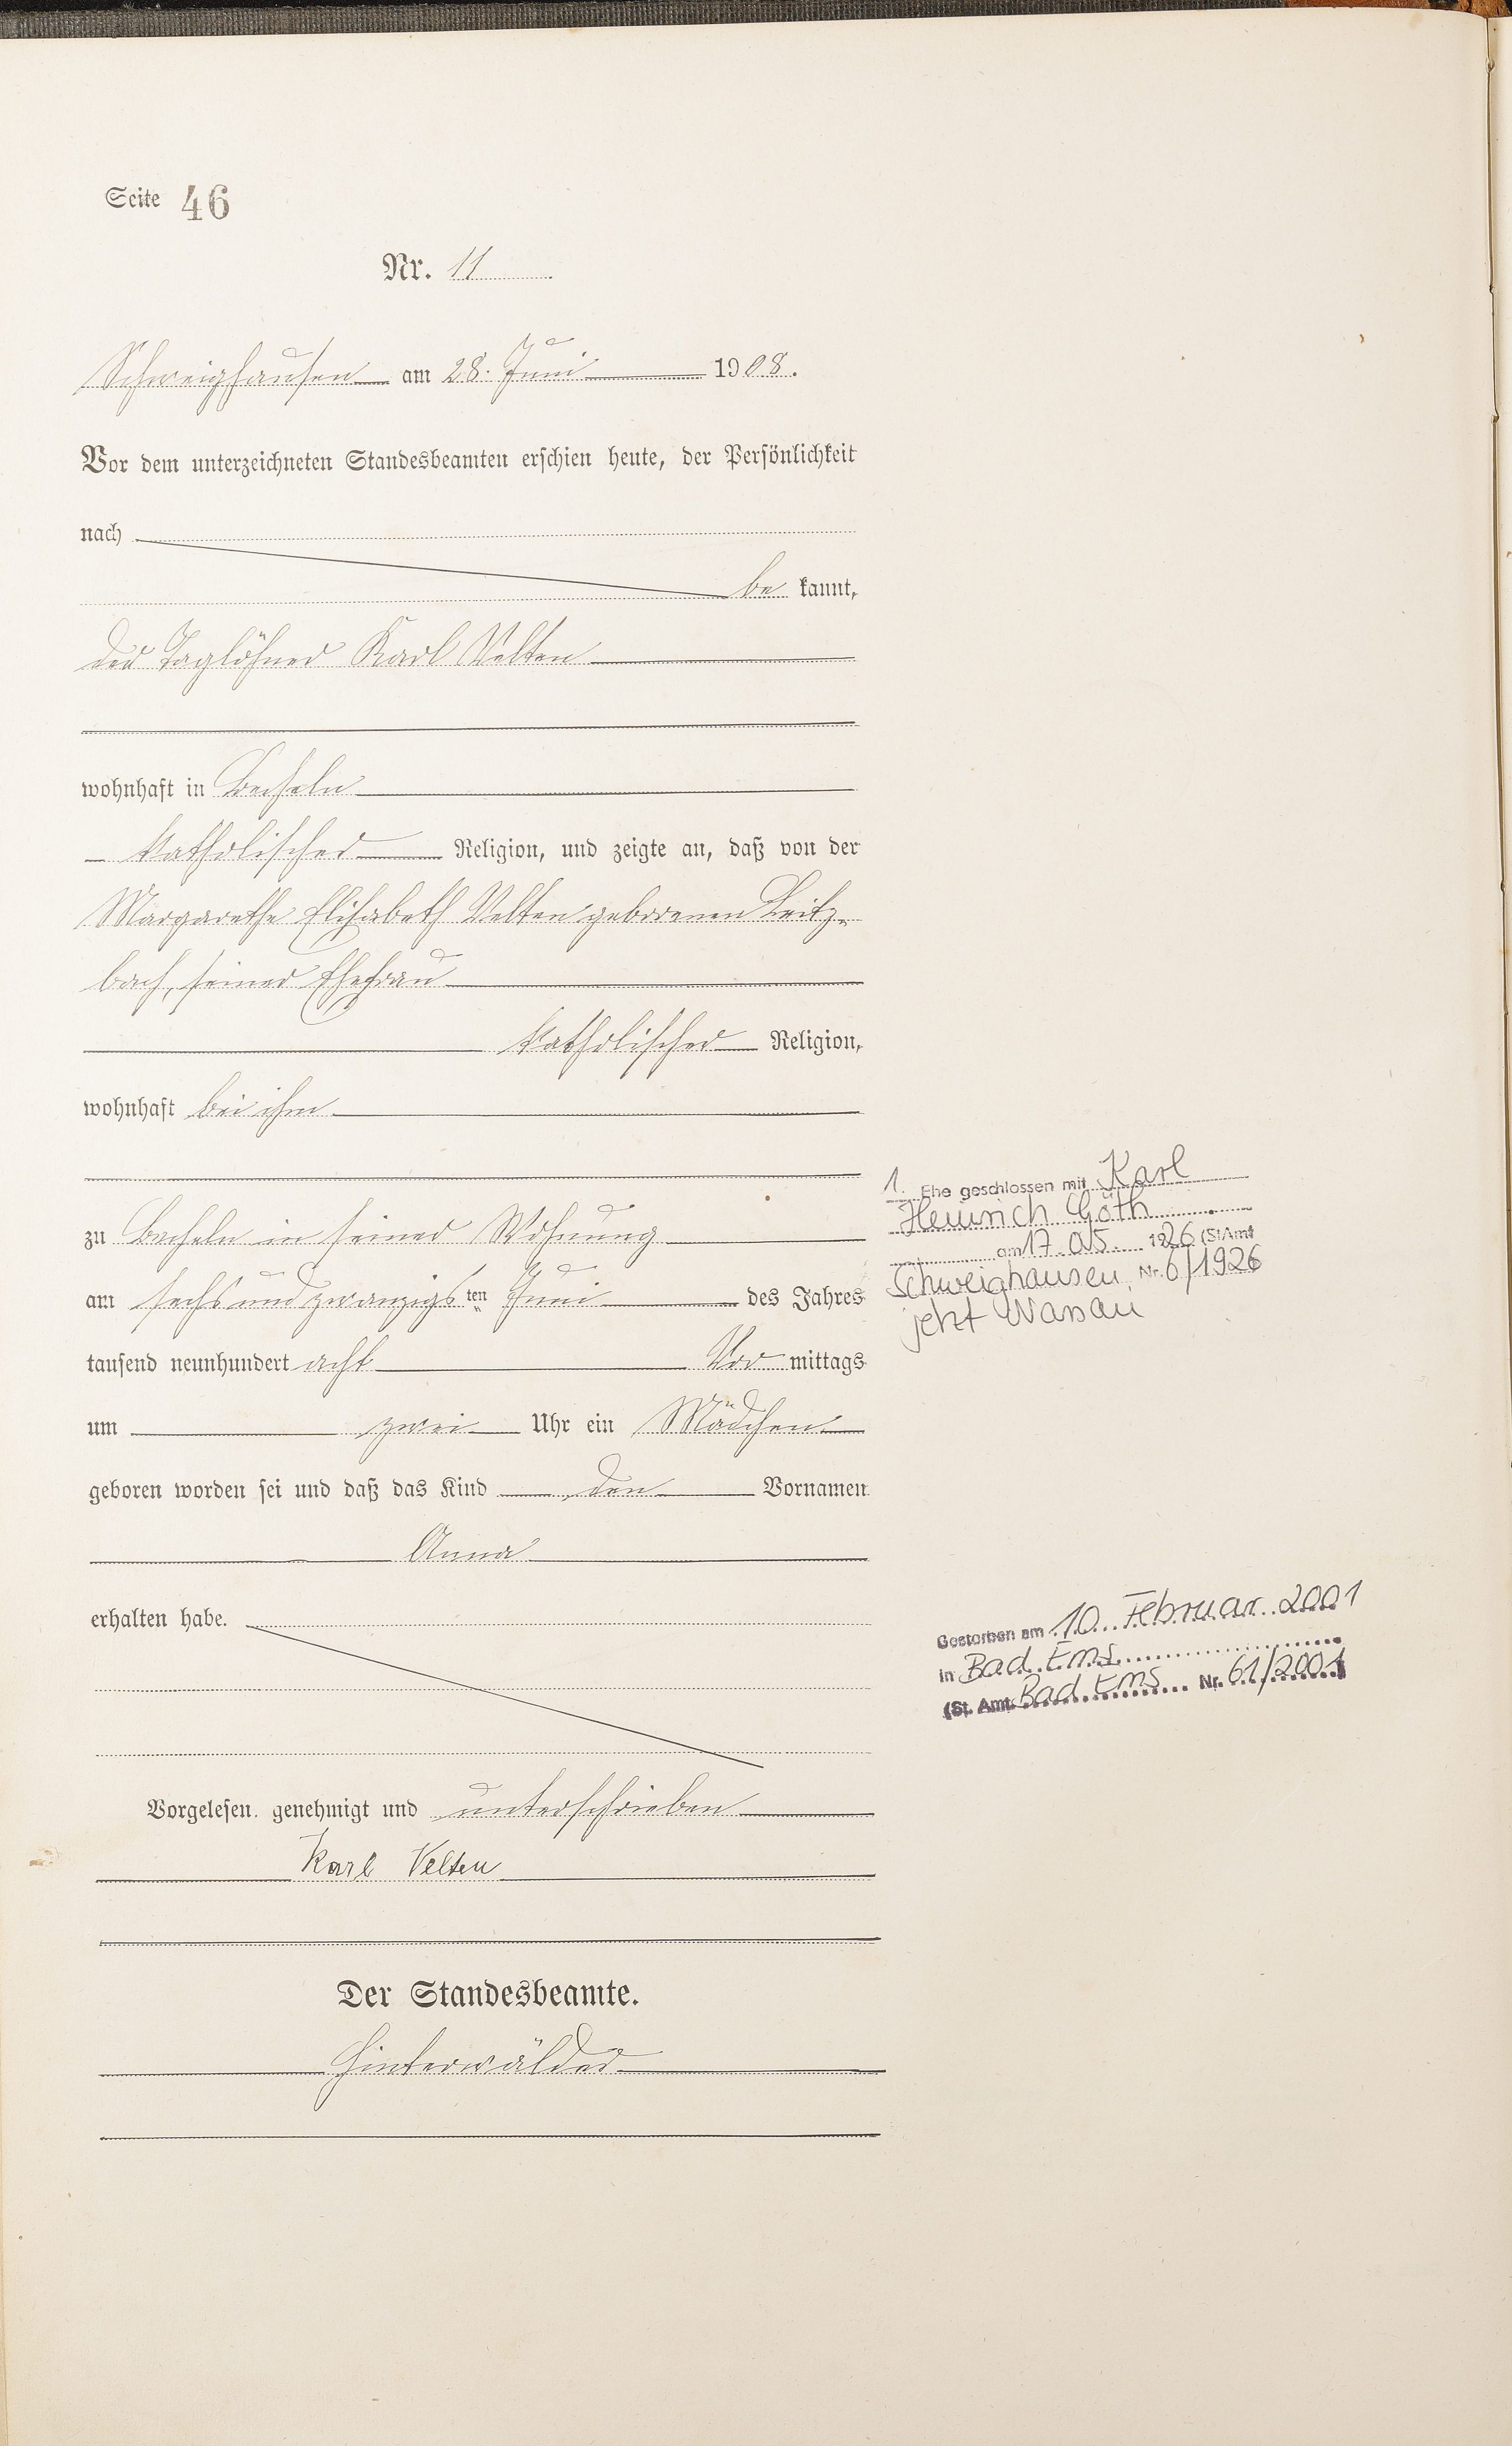 Seite 46
Nr. 11
Schweighausen am 28. Juni 1908.
Vor dem unterzeichneten Standesbeamten erschien heute, der Persönlichkeit
nach
be kannt,
der Taglöhner Karl Velten
wohnhaft in Becheln
katholischer Religion, und zeigte an, daß von der
Margarethe Elisabeth Velten geborenen Leitz-
bach, seiner Ehefrau
katholischer Religion,
wohnhaft bei ihm
zu Becheln in seiner Wohnung
am sechsundzwanzigs ten Juni des Jahres
tausend neunhundert acht Vor mittags
um zwei Uhr ein Mädchen
geboren worden sei und daß das Kind den Vornamen
Anna
erhalten habe.
Vorgelesen, genehmigt und unterschrieben
Karl Velten
Der Standesbeamte.
Hinterwälder
1. Ehe geschlossen mit Karl
Heinrich Göth
am 17.05. 1926 (StAmt
Schweighausen, Nr. 6/1926
jetzt Nassau
Gestorben am 10. Februar 2001
in Bad Ems
(St. Amt Bad Ems Nr. 61/2001)